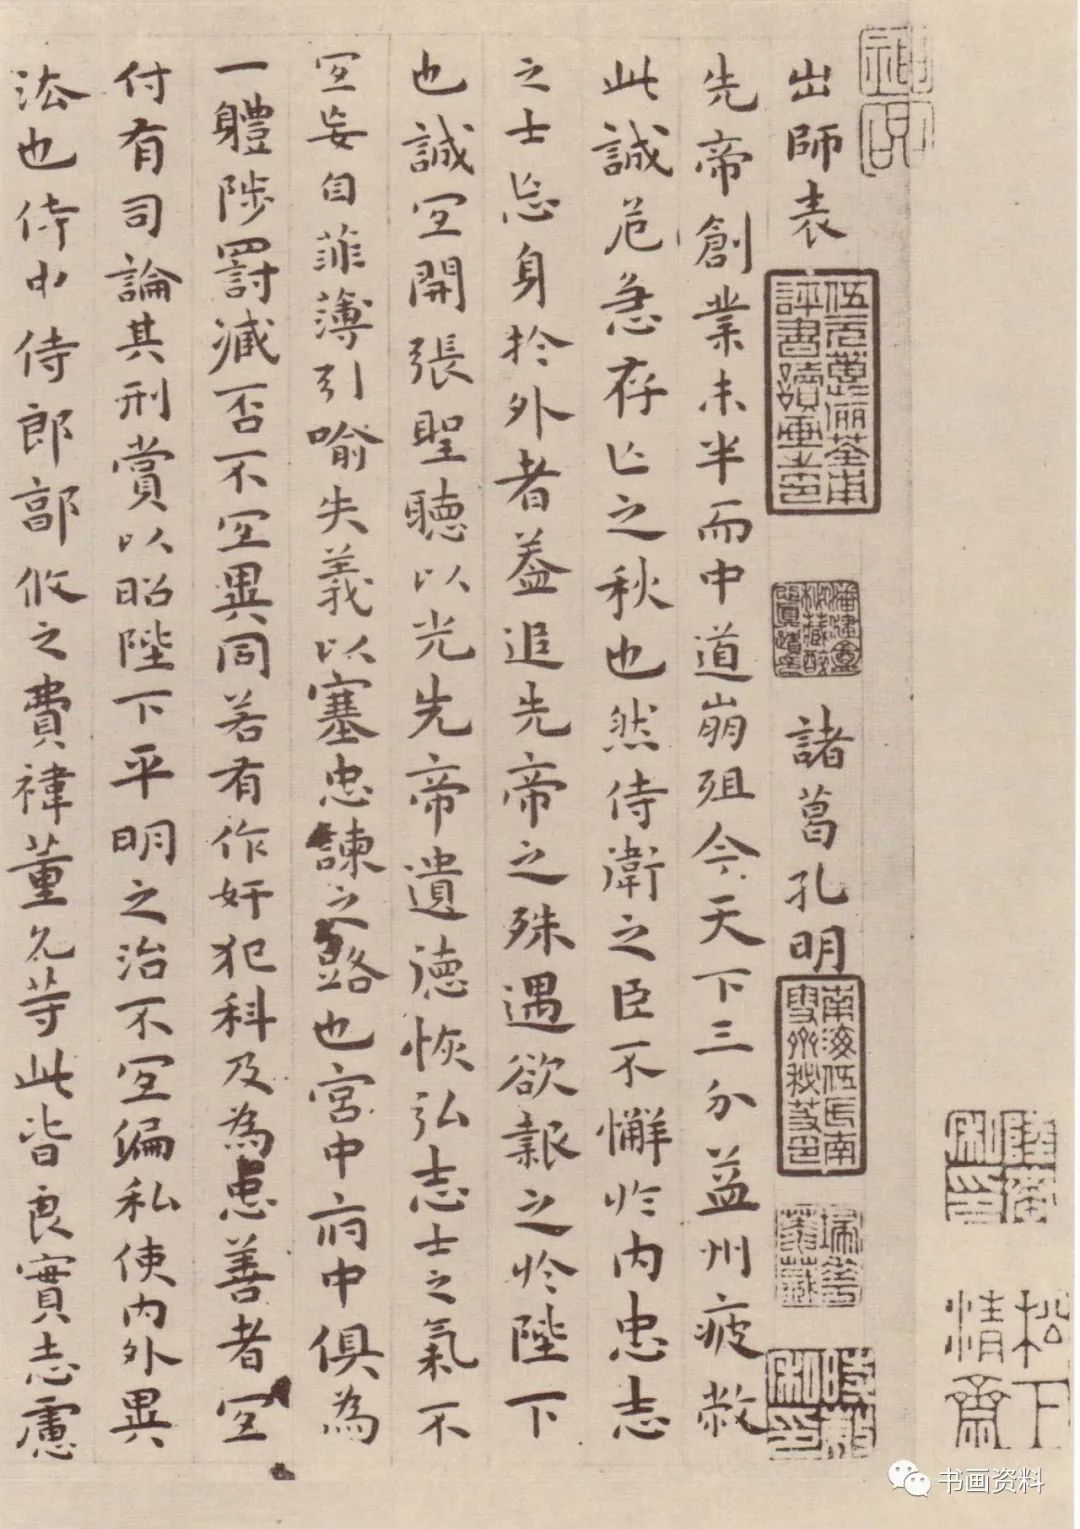 松下清齋
出師表 諸葛孔明
伍元蕙儷荃甫評書讀畫之印
南海伍氏南雪齋秘笈印
先帝創業未半而中道崩殂今天下三分益州疲敝
此誠危急存亡之秋也然侍衛之臣不懈於内忠志
之士忘身於外者蓋追先帝之殊遇欲報之於陛下
也誠宜開張聖聽以光先帝遺德恢弘志士之氣不
宜妄自菲薄引喻失義以塞忠諫之路也宮中府中俱為
一體陟罰臧否不宜異同若有作奸犯科及為忠善者宜
付有司論其刑賞以昭陛下平明之治不宜偏私使内外異
法也侍中侍郎郭攸之費禕董允等此皆良實志慮
书画资料